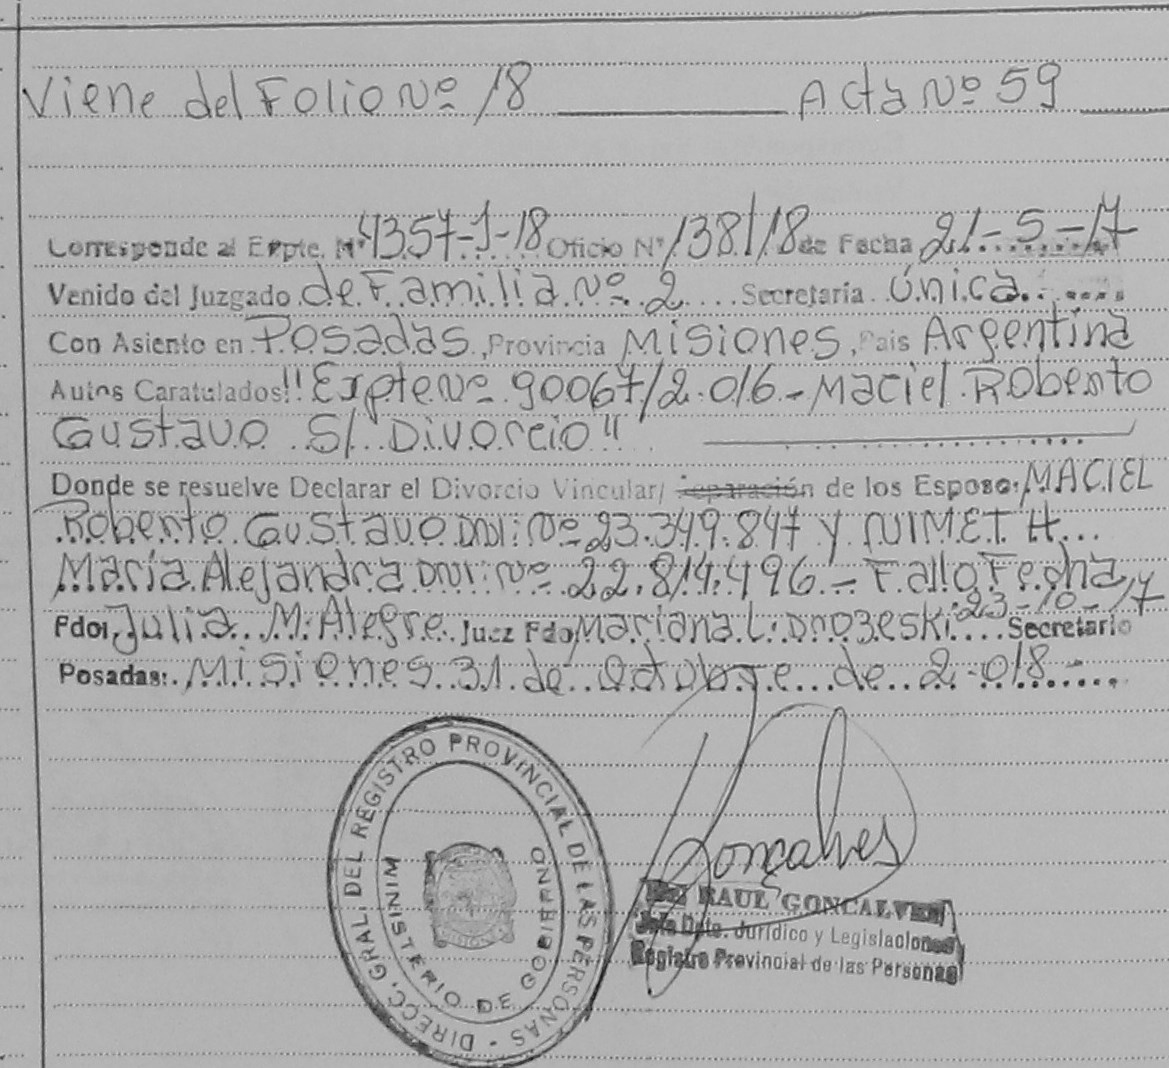 Viene del Folio Nº 18 Acta Nº 59
Corresponde al Expte. Nº 4357-J-18 Oficio Nº 1381/18 de Fecha 21-5-17
Venido del Juzgado de Familia Nº 2 Secretaría Única
Con Asiento en Posadas, Provincia Misiones, Pais Argentina
Autos Caratulados "Expte Nº 90067/2.016 - Maciel Roberto
Gustavo S/ Divorcio"
Donde se resuelve Declarar el Divorcio Vincular/ separación de los Esposo: MACIEL
Roberto Gustavo DNI: Nº 23.349.847 y NIMET H
María Alejandra DNI: Nº 22.814.496 - Fallo Fecha
23-10-17
Fdo: Julia M. Alegre Juez Fdo: Mariana L. Drozeski Secretario
Posadas: Misiones 31 de Octubre de 2.018 -
DIRECC. GRAL. DEL REGISTRO PROVINCIAL DE LAS PERSONAS -
MINISTERIO DE GOBIERNO
MISIONES
Goncalves
RAUL GONCALVES
Jefe Dpto. Jurídico y Legislaciones
Registro Provincial de las Personas